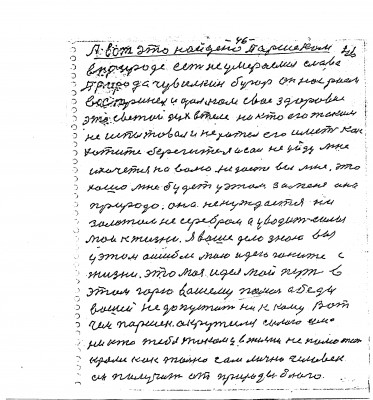 -46-
А вот это найдено Паршеком
в природе есть не умераемая слава
Природа чувилкин бугор он нас
и должен свае здоровье
это светой дух втеле на кто его таким
не испытовал и не хател его иметь как
хотите берегитеся а сам не уйду мне
хочется на волю не дають вы мне. это
мне будет у этом за меня она
природа. она ненуждается ни
золотом не серебром а уводит самая
моя к жизни. Я ваше дело знаю вы
у этом ошиблис мою идею гоните с
жизни. это мая идея мой путь в
этом горю вашему а беду
вашей недопустит ни к кому Вот
чем паршек окружил самого
никто тебе такому в жизни не поможет
кроме как только сам лично человек
он получит от природы благо.